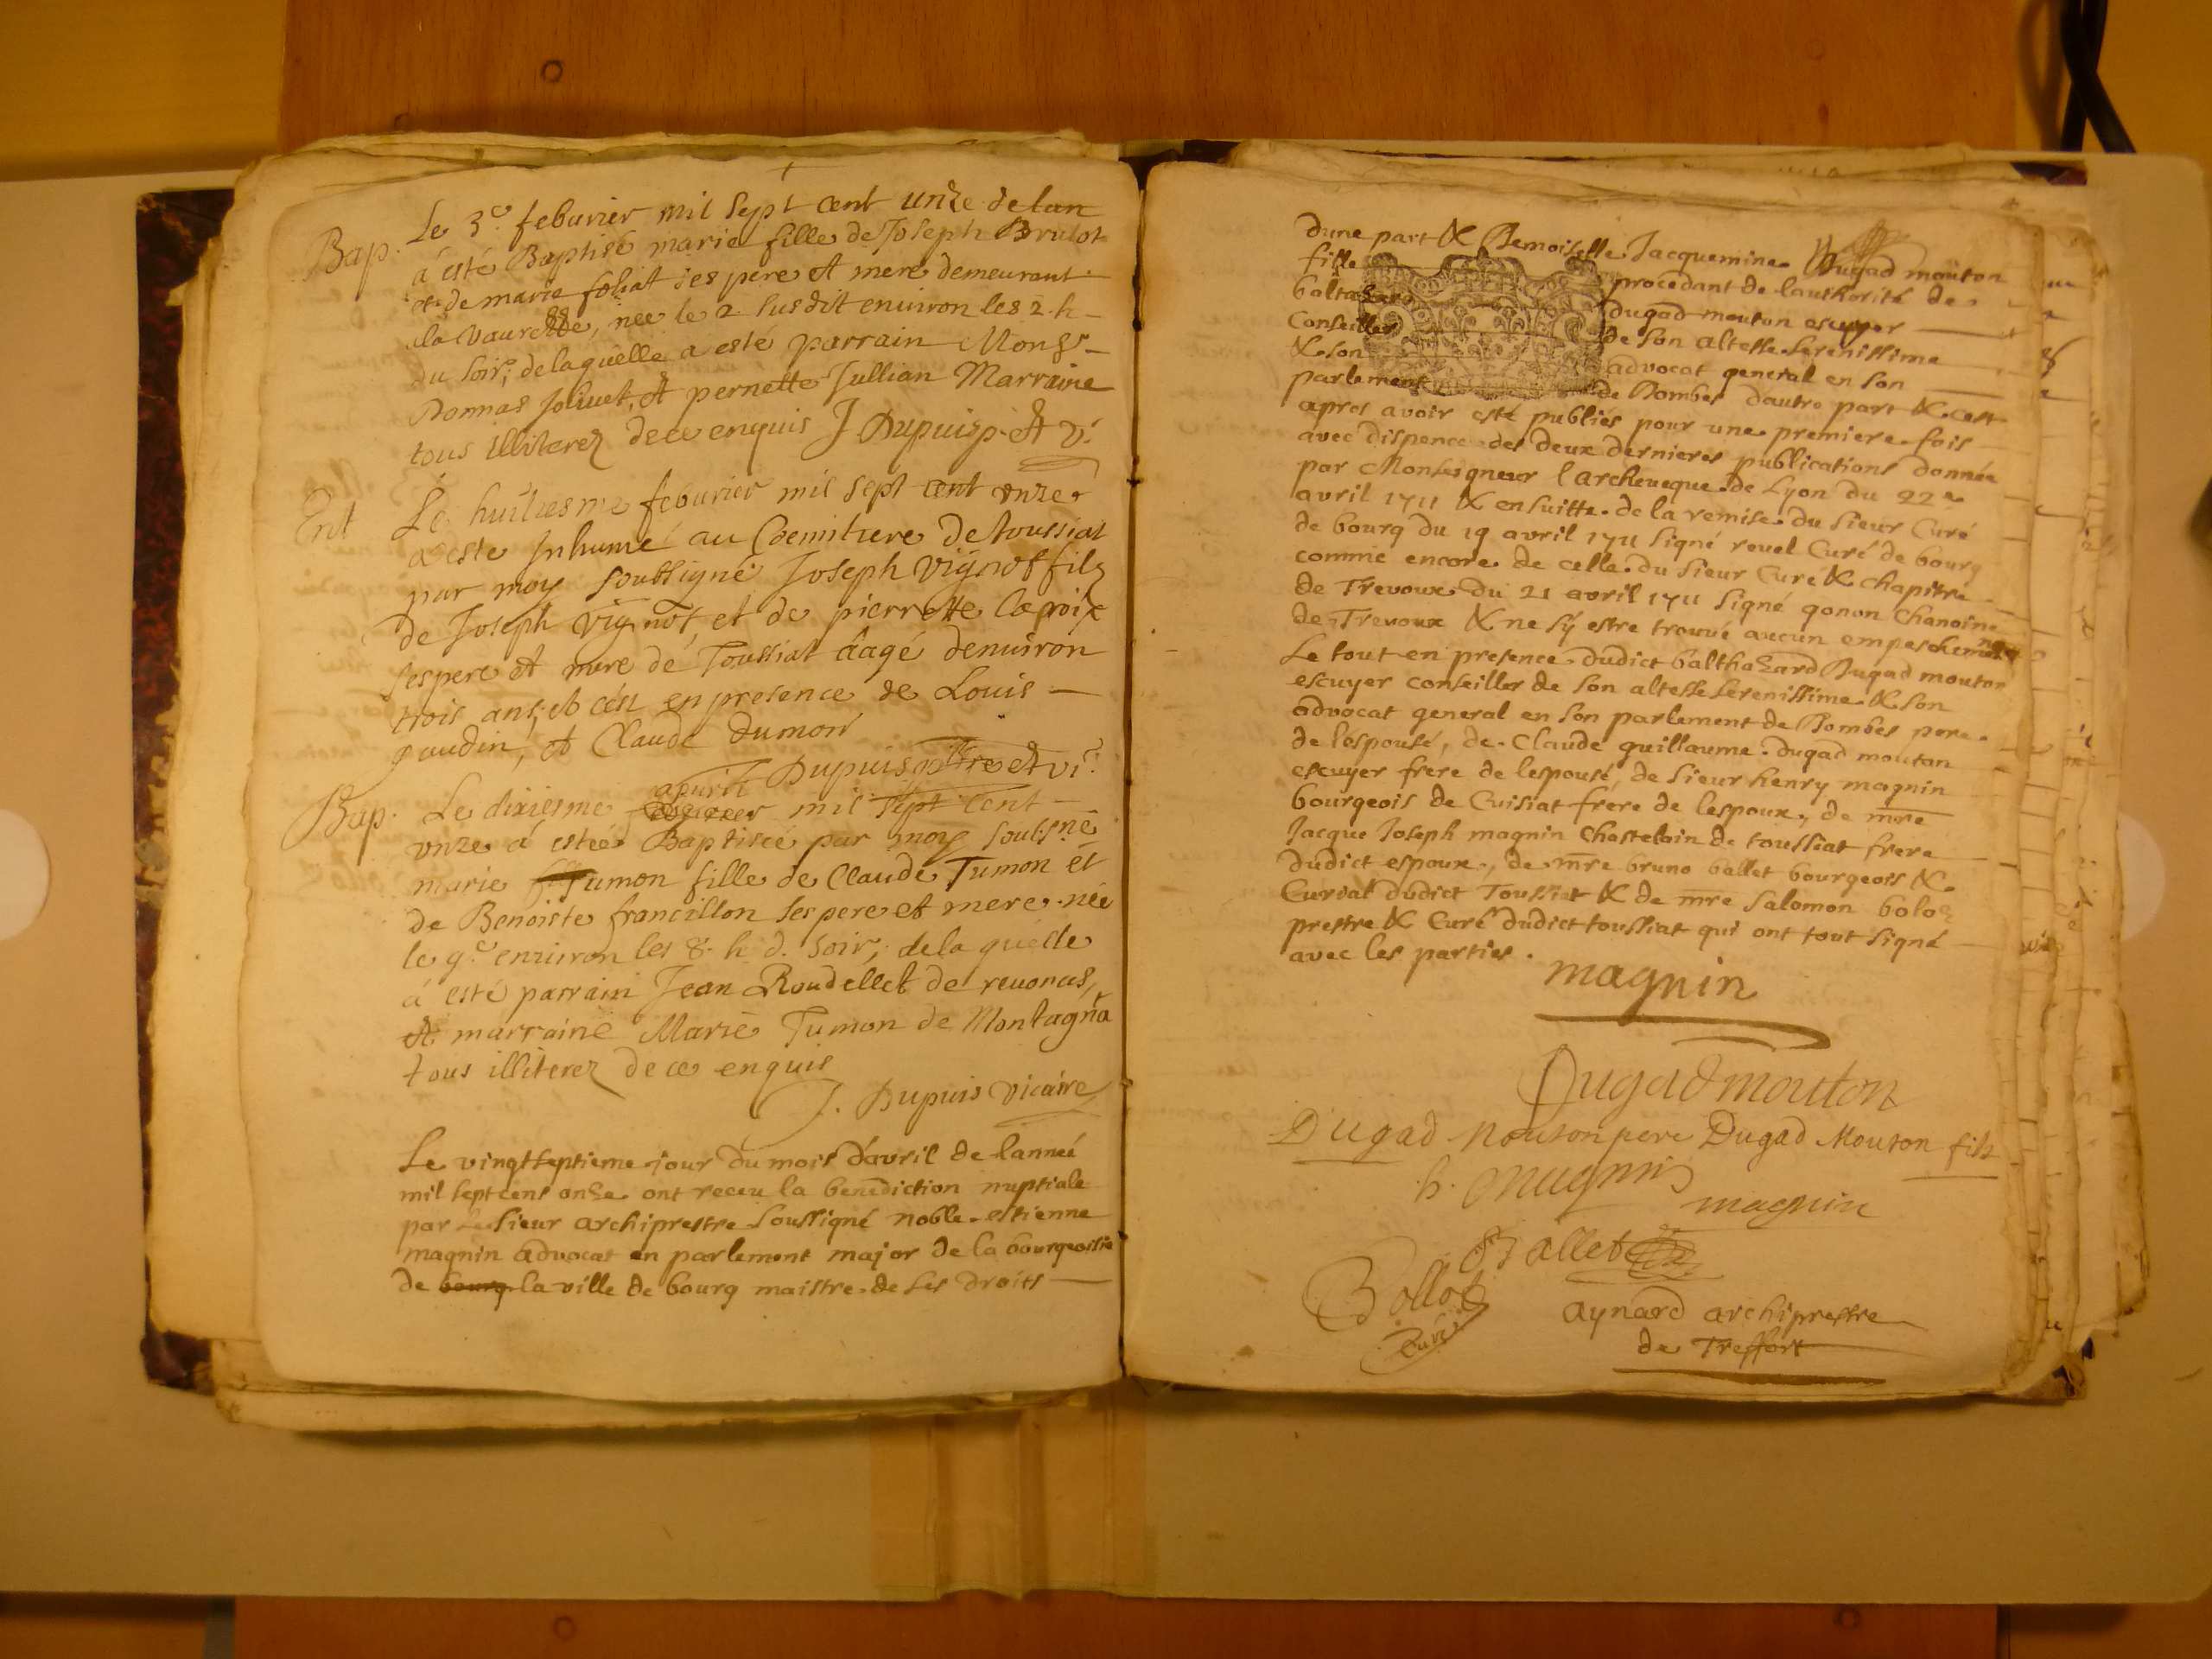 Bap. Le 3e. feburier mil sept cent unze de lan
a esté Baptisé marie fille de Joseph Brulot
et de marie foliat ses pere et mere demeurant
a la Vaurette, née le 2 susdit enuiron les 2 h
du soir; de laquelle a esté parrain Monsr
Donnas Joliuet, et pernette Jullian Marraine
tous illiterez de ce enquis J Dupuis p. et vi.
Ent Le huitiesme feburier mil sept cent onze
a esté Inhumé au Coemitiere de toussiat
par moy soubsigné Joseph Vignot filz
de Joseph Vignot, et de pierrette lacroix
ses pere et mere de Toussiat aagé denuiron
trois ans, et ceu en presence de Louis
gaudin, et Claude Dumon
Dupuis ptre et vi.
Bap. Le dixiesme apuril mil sept cent
vnze a estée Baptisée par moy soubsné
marie Tumon fille de Claude Tumon et
de Benoiste francillon ses pere et mere née
le 9e. enuiron les 8. h d. soir; de la quelle
a esté parrain Jean Roudellet de reuonas,
et marraine Marie Tumon de Montagna
tous illiterez de ce enquis
J. Dupuis vicaire
Le vingtseptieme jour du mois d'avril de lanneé
mil sept cent onze ont receu la benediction nuptiale
par le sieur archiprestre soussigné noble estienne
magnin advocat en parlement major de la bourgeoisie
de bourg la ville de bourg maistre de ses droits
dune part & Demoiselle Jacquemine Dugad mouton
fille procedant de lauthorité de
baltazard dugad mouton escuyer
Conseiller de son altesse serenissime
& son advocat general en son
parlement de Dombes dautre part & cest
apres avoir esté publiés pour une premiere fois
avec dispence des deux dernieres publications donnée
par Monseigneur l'archeueque de Lyon du 22e
avril 1711 & ensuitte de la remise du sieur Curé
de bourg du 19 avril 1711 signé revel Curé de bourg
comme encore de celle du sieur Curé & chapitre
de Trevoux du 21 avril 1711 signé gonon chanoine
de Trevoux & ne sÿ estre trouvé aucun empeschement
Le tout en presence dudict balthazard Dugad mouton
escuyer conseiller de son altesse serenissime & son
advocat general en son parlement de Dombes pere
de lespouse, de Claude guillaume dugad moutan
escuyer frere de lespouse, de sieur henry magnin
bourgeois de Cuisiat frére de lespoux, de mre
Jacque Joseph magnin Chastelain de toussiat frere
dudict espoux, de mre bruno ballet bourgeois &
Curial dudict Toussiat & de mre salomon boloz
prestre & Curé dudict toussiat qui ont tout signé
avec les parties.
magnin
Dugadmouton
Dugad Mouton pere Dugad Mouton fils
h. Magnin
magnin
Ballet
Bolloz
Curé
aynard archiprestre
de Treffort